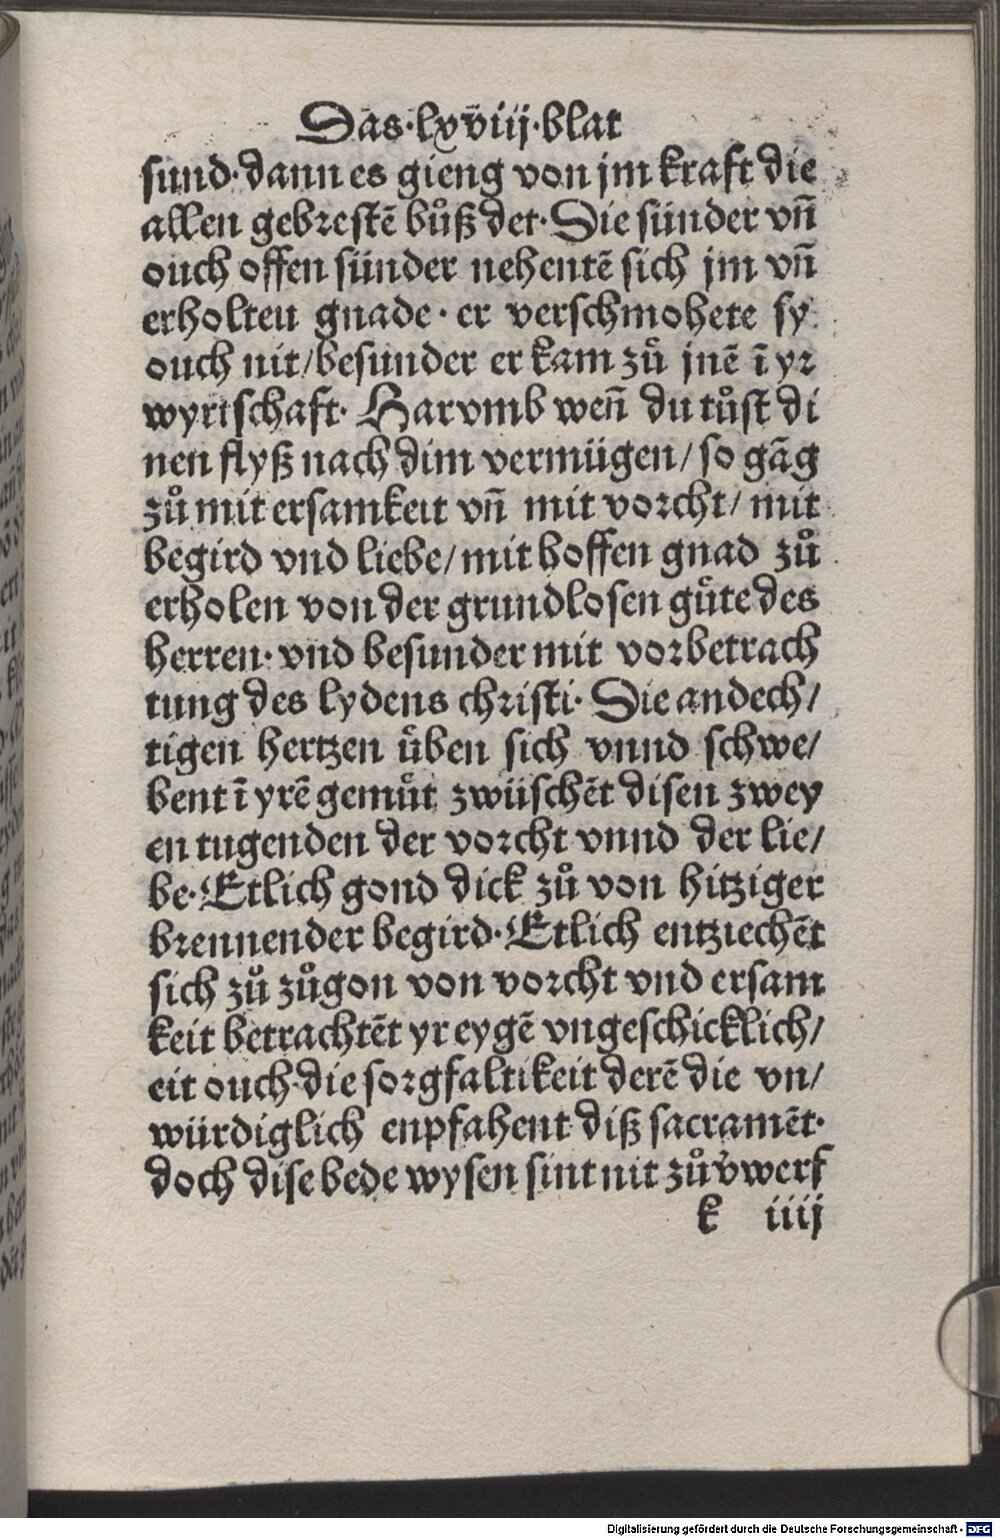 Das·lxviij·blat
sund·dann es gieng von jm kraft die
allen gebrestē bůß det·Die sünder vñ
ouch offen sünder nehentē sich jm vñ
erholten gnade· er verschmohete sy
ouch nit/besunder er kam zů jnē ī yr
wyrtschaft· Harvmb weñ du tůst di
nen flyß nach dim vermügen/so gāg
zů mit ersamkeit vñ mit vorcht/mit
begird vnd liebe/mit hoffen gnad zů
erholen von der grundlosen gůte des
herren·vnd besunder mit vorbetrach
tung des lydens christi·Die andech/
tigen hertzen üben sich vnnd schwe/
bent ī yrē gemůt zwüschēt disen zwey
en tugenden der vorcht vnnd der lie/
be·Etlich gond dick zů von hitziger
brennender begird·Etlich entziechēt
sich zů zůgon von vorcht vnd ersam
keit betrachtēt yr eygē vngeschicklich/
eit ouch·die sorgfaltikeit derē die vn/
würdiglich enpfahent diß sacramēt·
doch dise bede wysen sint nit zů v̄werf
k iiij
Digitalisierung gefördert durch die Deutsche Forschungsgemeinschaft - DFG